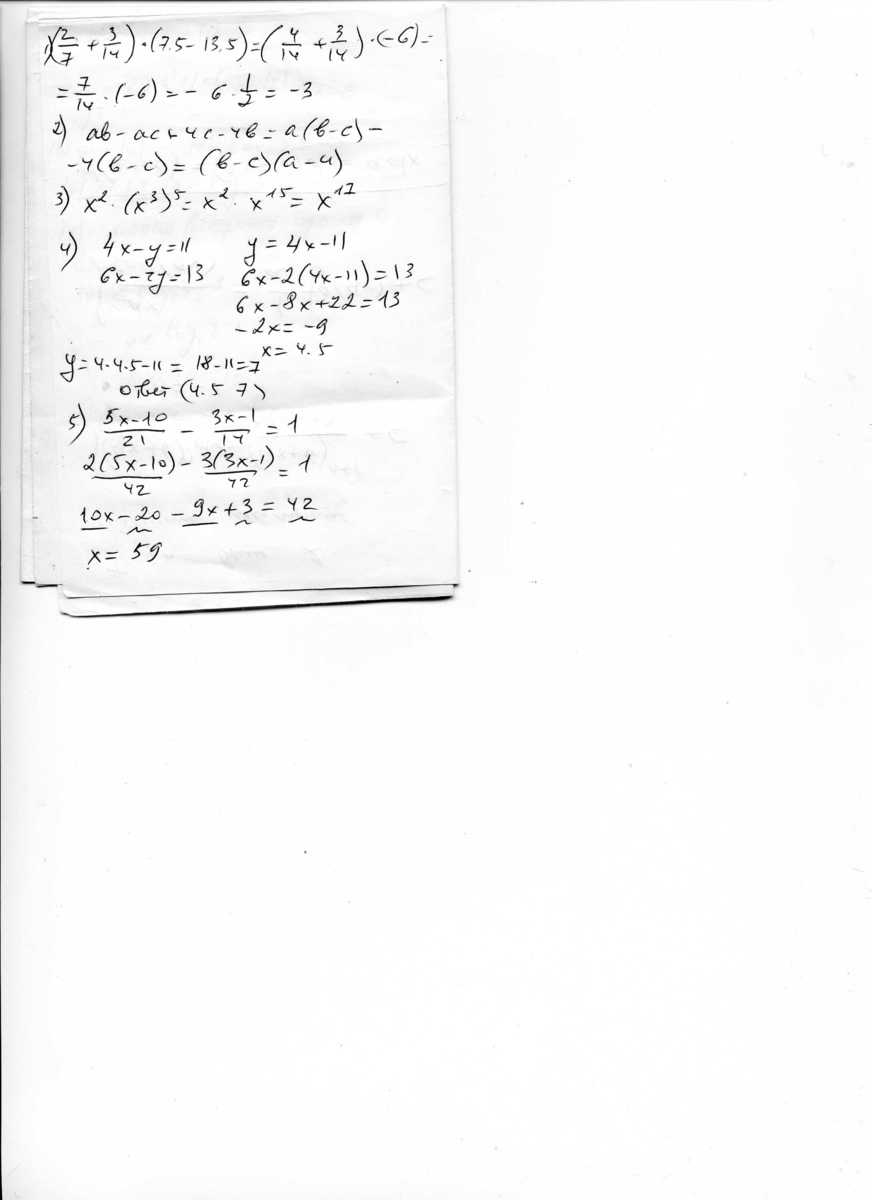 1) (2/7 + 3/14) · (7.5 - 13.5) = (4/14 + 3/14) · (-6) =
= 7/14 · (-6) = - 6 · 1/2 = -3
2) ав - ас + 4с - 4в = а(в-с) -
-4(в-с) = (в-с)(а-4)
3) x² · (x³)⁵ = x² · x¹⁵ = x¹⁷
4) 4x-y=11 y=4x-11
6x-2y=13 6x-2(4x-11)=13
6x-8x+22=13
-2x=-9
x=4.5
y=4·4.5-11=18-11=7
ответ (4.5 7)
5) (5x-10)/21 - (3x-1)/14 = 1
2(5x-10)/42 - 3(3x-1)/42 = 1
10x-20-9x+3=42
x=59